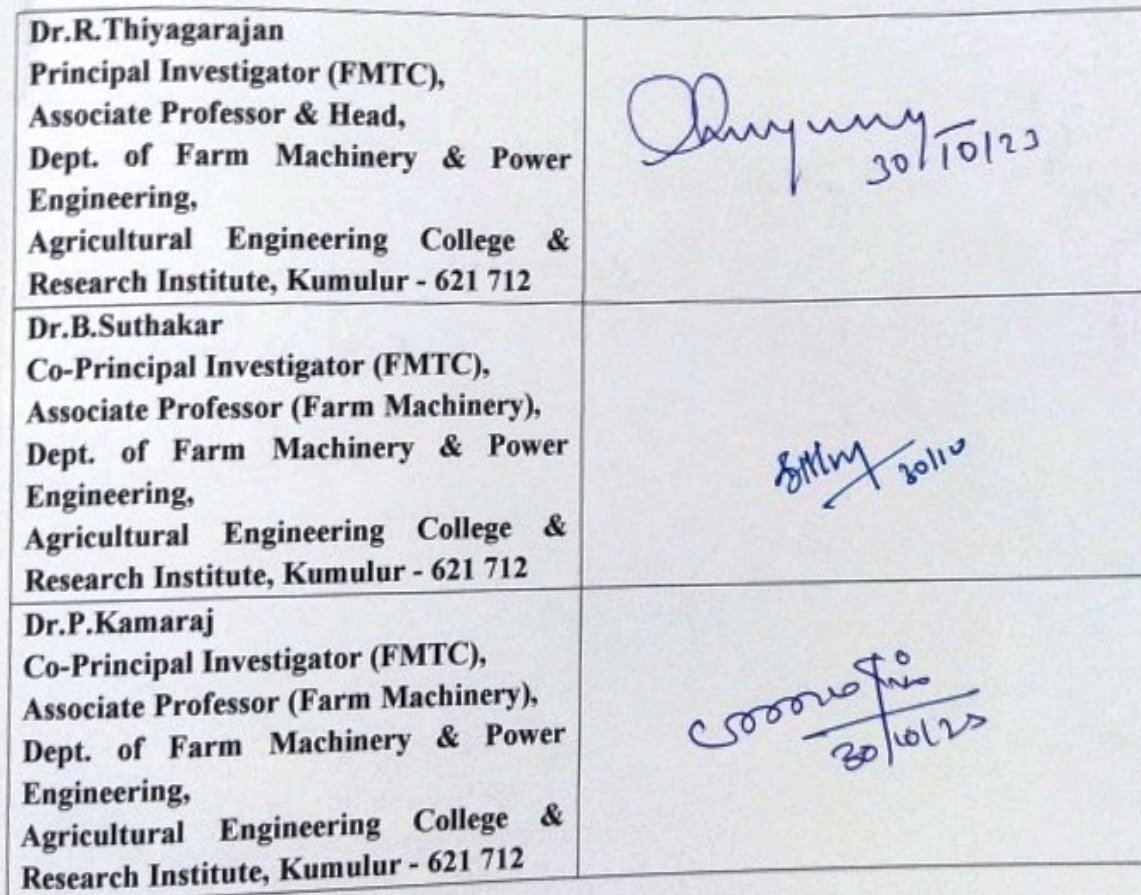 Dr.R.Thiyagarajan
Principal Investigator (FMTC),
Associate Professor & Head,
Dept. of Farm Machinery & Power
Engineering,
Agricultural Engineering College &
Research Institute, Kumulur - 621 712
30/10/23
Dr.B.Suthakar
Co-Principal Investigator (FMTC),
Associate Professor (Farm Machinery),
Dept. of Farm Machinery & Power
Engineering,
Agricultural Engineering College &
Research Institute, Kumulur - 621 712
30/10
Dr.P.Kamaraj
Co-Principal Investigator (FMTC),
Associate Professor (Farm Machinery),
Dept. of Farm Machinery & Power
Engineering,
Agricultural Engineering College &
Research Institute, Kumulur - 621 712
30/10/23